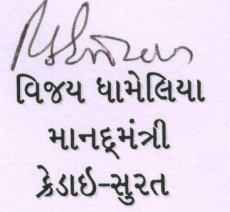 વિજય ધામેલિયા
માનદ્‌મંત્રી
ક્રેડાઇ-સુરત